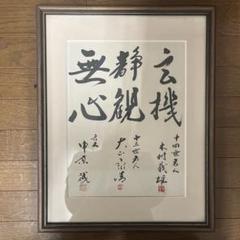 玄機
十四世名人
木村義雄
静観
十五世名人
大山康晴
無心
九段
中原誠